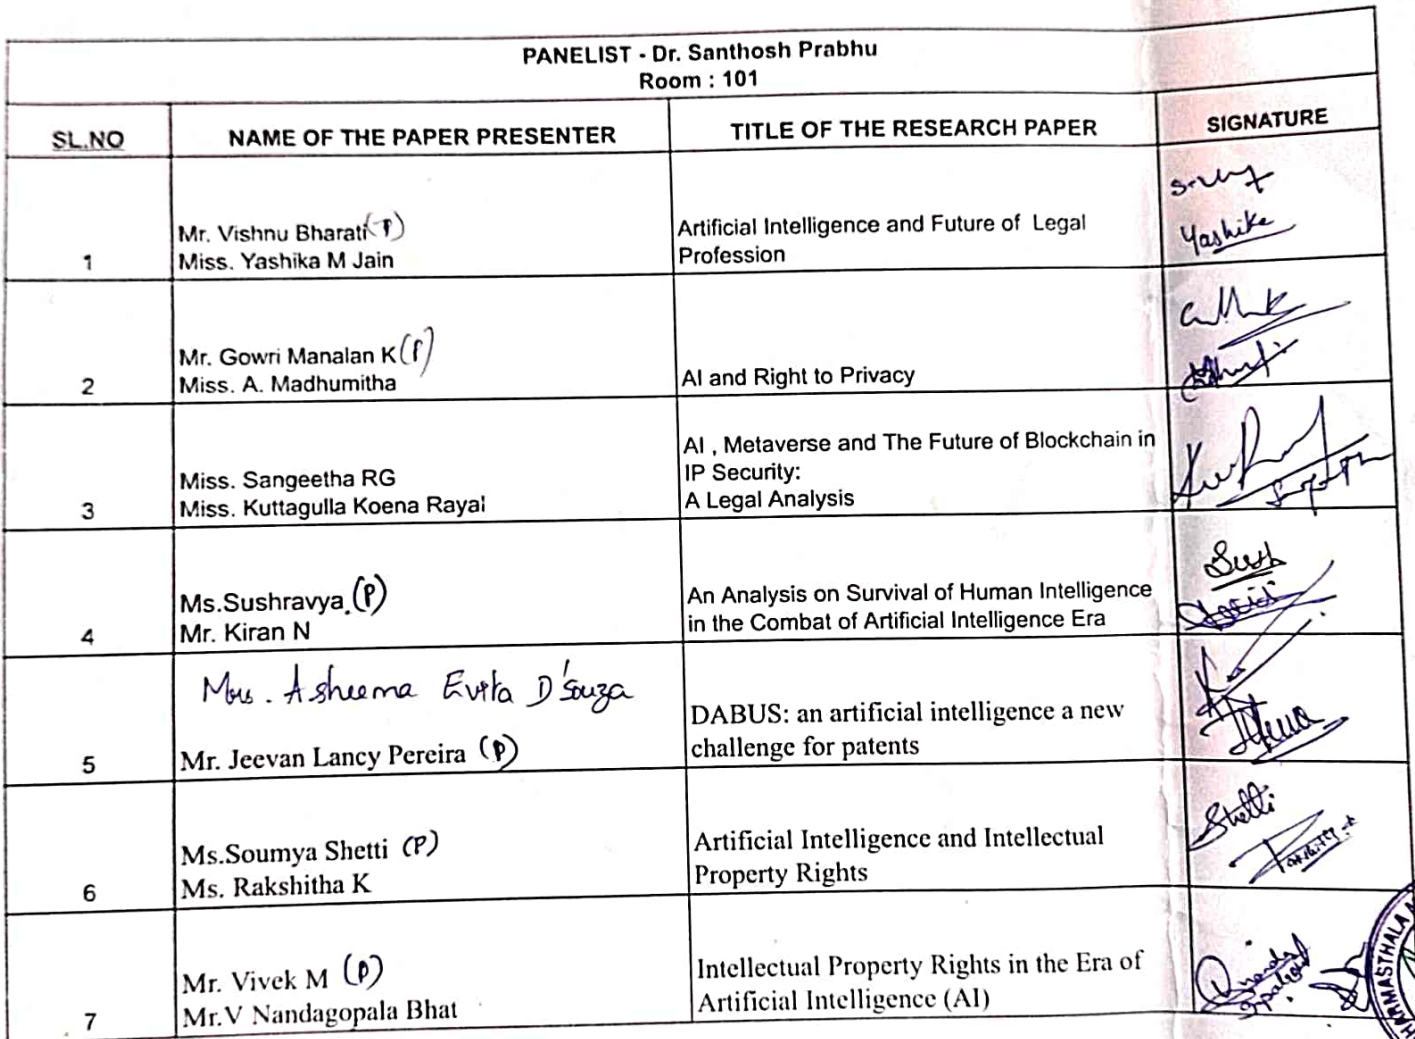 PANELIST - Dr. Santhosh Prabhu
Room : 101
SL.NO NAME OF THE PAPER PRESENTER TITLE OF THE RESEARCH PAPER SIGNATURE
1
Mr. Vishnu Bharati (P)
Miss. Yashika M Jain
Artificial Intelligence and Future of Legal
Profession
Yashika
2
Mr. Gowri Manalan K (P)
Miss. A. Madhumitha
AI and Right to Privacy
3
Miss. Sangeetha RG
Miss. Kuttagulla Koena Rayal
AI , Metaverse and The Future of Blockchain in
IP Security:
A Legal Analysis
4
Ms.Sushravya. (P)
Mr. Kiran N
An Analysis on Survival of Human Intelligence
in the Combat of Artificial Intelligence Era
Sush
5
Mrs. Asheema Evita D'Souza
Mr. Jeevan Lancy Pereira (P)
DABUS: an artificial intelligence a new
challenge for patents
6
Ms.Soumya Shetti (P)
Ms. Rakshitha K
Artificial Intelligence and Intellectual
Property Rights
Shetti
7
Mr. Vivek M (P)
Mr.V Nandagopala Bhat
Intellectual Property Rights in the Era of
Artificial Intelligence (AI)